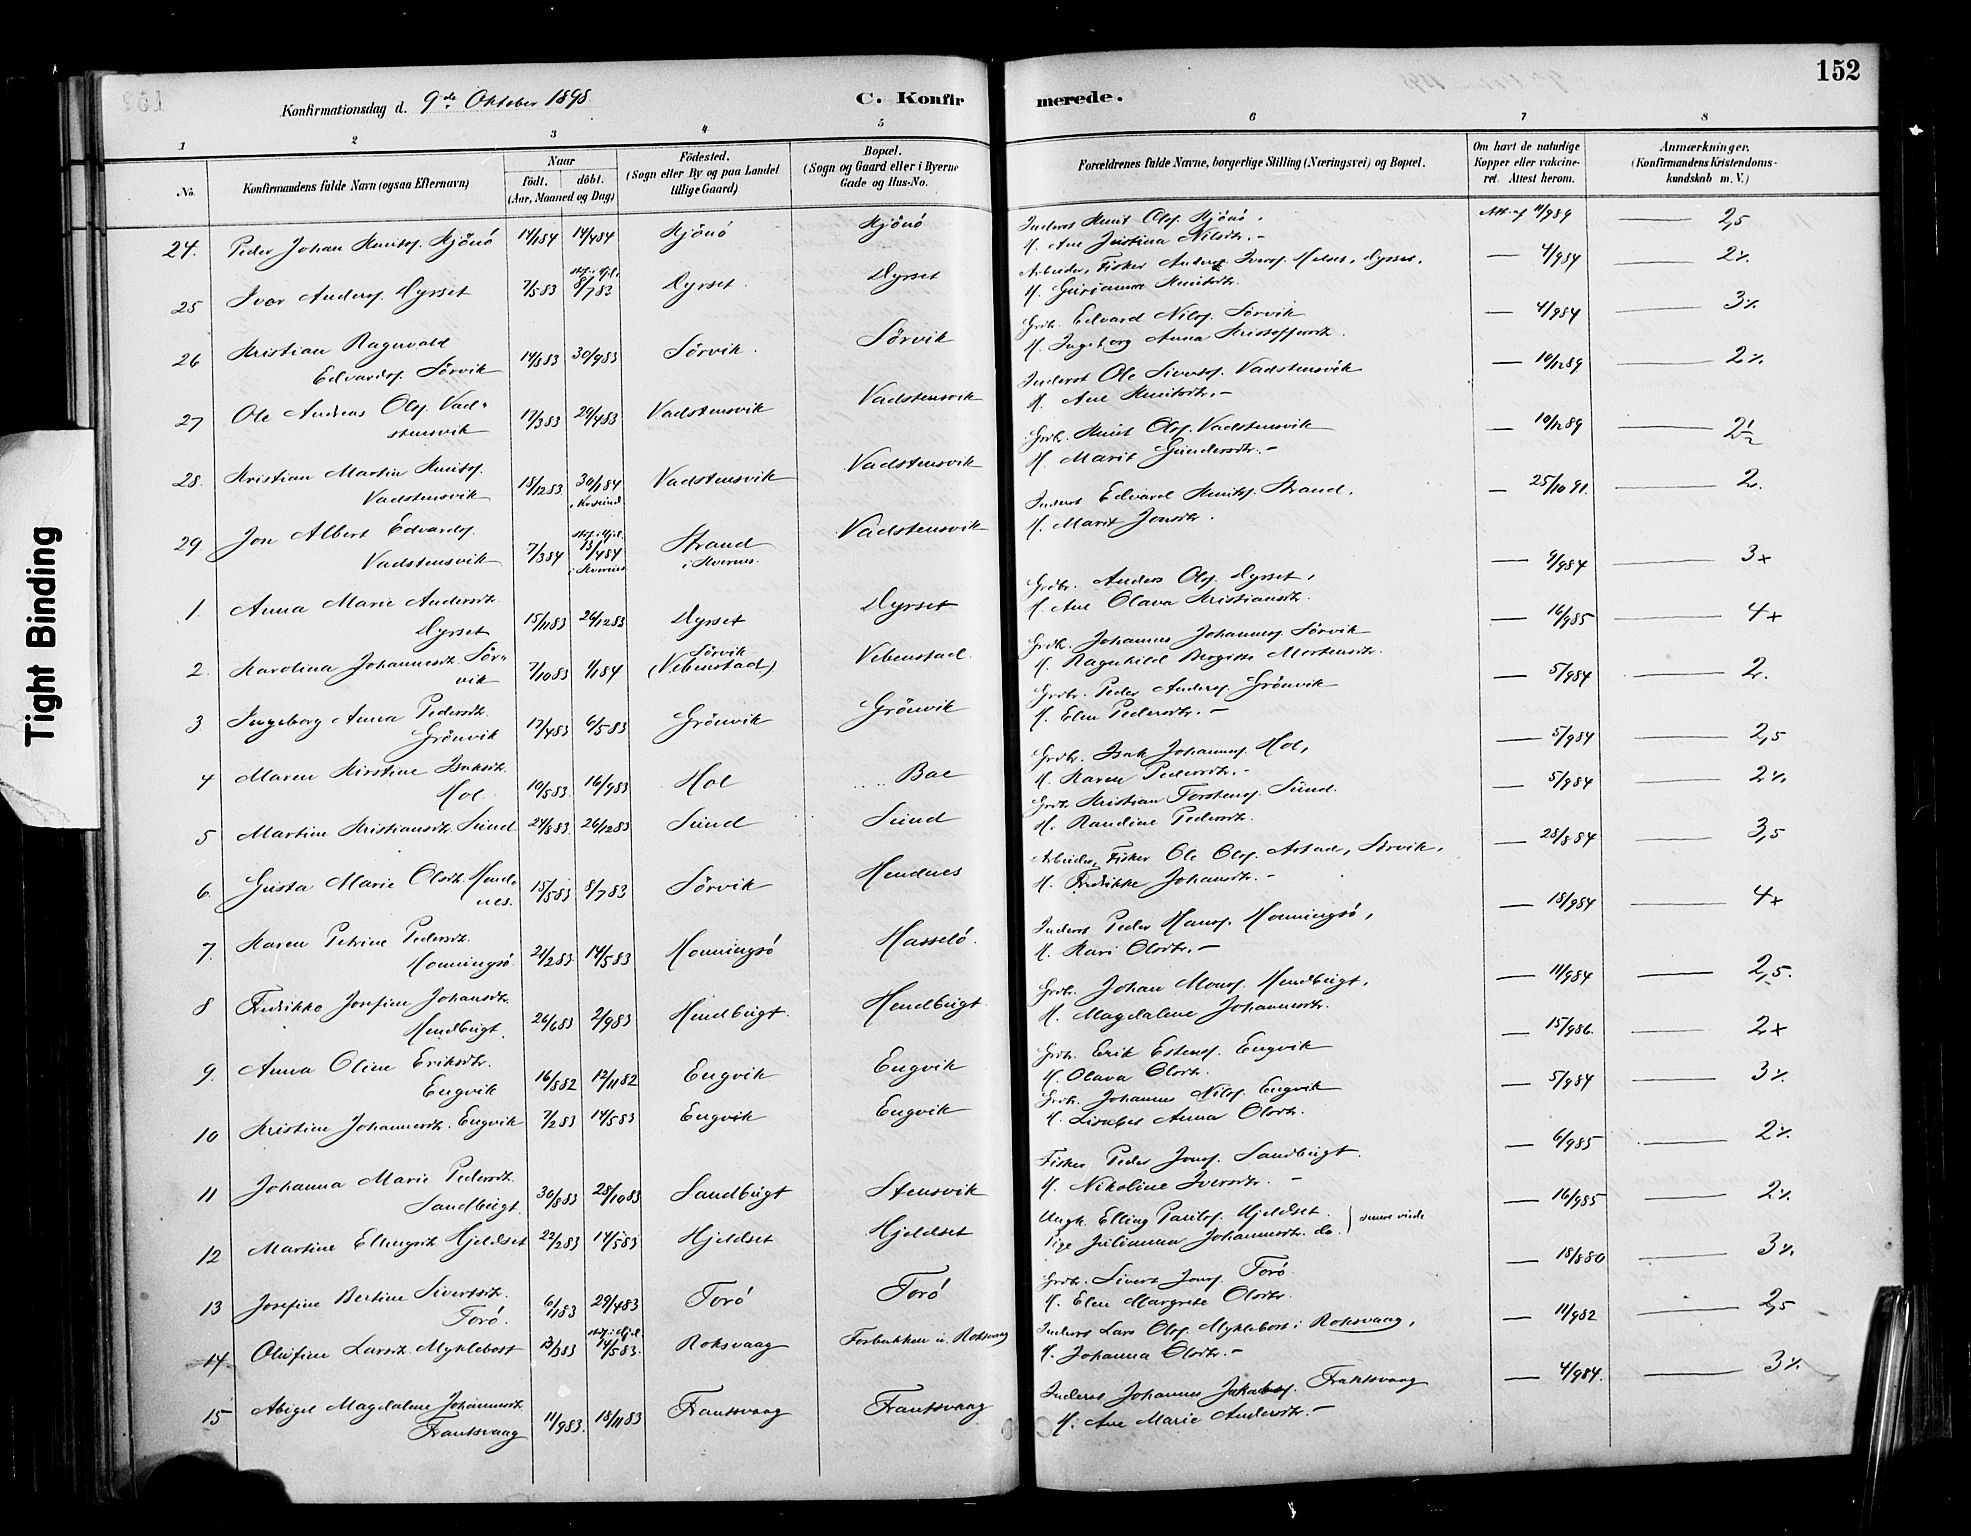 152
Konfirmationsdag d. 9de Oktober 1898
C. Konfirmerede.
1 2 3 4 5 6 7 8
No.
Konfirmandens fulde Navn (ogsaa Efternavn)
Naar
født. døbt.
(Aar, Maaned og Dag)
Födested.
(Sogn eller By og paa Landet
tillige Gaard)
Bopæl.
(Sogn og Gaard eller i Byerne
Gade og Hus-No.
Forældrenes fulde Navne, borgerlige Stilling (Næringsvei) og Bopæl.
Om havt de naturlige
Kopper eller vakcine-
ret. Attest herom.
Anmærkninger.
(Konfirmandens Kristendoms-
kundskab m. V.)
24. Peder Johan Knutsf. Kjönö 14/184 14/484 Kjönö Kjönö
Inderst Knut Olsf. Kjönö.
H. Ane Justina Nilsdtr. –
11/989 2,5
25 Ivar Andersf. Dyrset 7/583 8/783 Dyrset. Dyrset
Arbeider, Fisker Anders Iversf. Dyrset,
H. Gurianna Knutsdtr.
4/984 2%
26 Kristian Ragnvald
Edvardsf. Sörvik 14/883 30/983 Sörvik. Sörvik
Grdbr. Edvard Nilsf. Sörvik
H. Ingeborg Anna Kristoffersdtr.
4/984 3%
27 Ole Andreas Olsf. Vad-
stensvik 17/383 29/483 Vadstensvik Vadstensvik
Inderst Ole Sivertsf. Vadstensvik
H. Ane Knutsdtr. –
10/1289 2%
28. Kristian Martin Knutsf.
Vadstensvik 18/1283 30/184 Vadstensvik Vadstensvik
Grdbr. Knut Olsf. Vadstensvik
H. Marit Gundersdtr. –
10/1289 2½
29 Jon Albert Edvardsf.
Vadstensvik 7/384 13/484 i Kvernes Strand
i Kvernes. Vadstensvik
Inderst Edvard Knutsf. Strand.
H. Marit Jonsdtr.
25/1091. 2.
1. Anna Marie Andersdtr.
Dyrset 15/1183 26/1283 Dyrset Dyrset
Grdbr. Anders Olsf. Dyrset,
H. Ane Olava Kristiansdtr.
9/984 3x
2. Karolina Johannesdtr. Sör-
vik 7/1083 1/184 Sörvik
(Vebenstad) Vebenstad.
Grdbr. Johannes Johannesf. Sörvik
H. Ragnhild Bergitte Mortensdtr.
16/985 4x
3 Ingeborg Anna Pedersdtr.
Grönvik 17/483 6/583 Grönvik Grönvik
Grdbr. Peder Andersf. Grönvik
H. Elen Pedersdtr. –
5/984 2.
4 Maren Kirstine Isaksdtr.
Hol 10/583 16/983 Hol Bae
Grdbr. Isak Johannesf. Hol,
H. Karen Pedersdtr. –
5/984 2,5
5 Martine Kristiansdtr. Sund 24/883 26/1283 Sund Sund
Grdbr. Kristian Torstensf. Sund.
H. Randine Pedersdtr.
5/984 2%
6 Gusta Marie Olsdtr. Hend-
nes. 15/583 8/783 Sörvik Hendnes
Arbeider, Fisker Ole Olsf. Sörvik,
H. Fredrikke Johansdtr. –
28/884 3,5
7. Karen Petrine Pedersdtr.
Honningsö. 21/283 14/583 Honningsö Hasselö.
Inderst Peder Hansf. Honningsö,
H. Kari Olsdtr. –
18/984 4x
8 Fredrikke Josefine Johansdtr.
Hendbugt. 26/683 2/983 Hendbugt. Hendbugt.
Grdbr. Johan Monsf. Hendbugt,
H. Magdalene Johannesdtr.
11/984 2,5.
9. Anna Oline Eriksdtr.
Engvik 16/882 12/1182 Engvik Engvik
Grdbr. Erik Estensf. Engvik
H. Olava Olsdtr.
15/986. 2x
10 Kristine Johannesdtr. Engvik 7/283 14/583 Engvik Engvik
Grdbr. Johannes Nilsf. Engvik
H. Lisabet Anna Olsdtr.
5/984 3%
11 Johanna Marie Pedersdtr.
Sandbugt. 30/883 28/1083 Sandbugt Stensvik
Fisker Peder Jonsf. Sandbugt.
H. Nikoline Iversdtr. –
6/985 2%
12 Martine Ellingsdtr. Hjeldset 22/283 14/583 Hjeldset Hjeldset
Ungk. Elling Paulsf. Hjeldset.
Pige Julianna Johannesdtr. do.
16/985 2%
13 Josefine Bertine Sivertsdtr.
Torö. 6/183 29/483 Torö Torö
Grdbr. Sivert Jonsf. Torö.
H. Elen Margrete Olsdtr.
18/880 3%
14 Olufine Larsdtr. Myklebost 13/383 14/583. Roksvaag Forbakken u. Roksvaag
Inderst Lars Olsf. Myklebost i Roksvaag,
H. Johanna Olsdtr. –
11/982 2,5
15 Abigel Magdalene Johannesdtr.
Frantsvaag 11/983. 18/1183 Frantsvaag Frantsvaag
Inderst Johannes Jakobsf. Frantsvaag
H. Ane Marie Andersdtr. –
4/984. 3%
Tight Binding